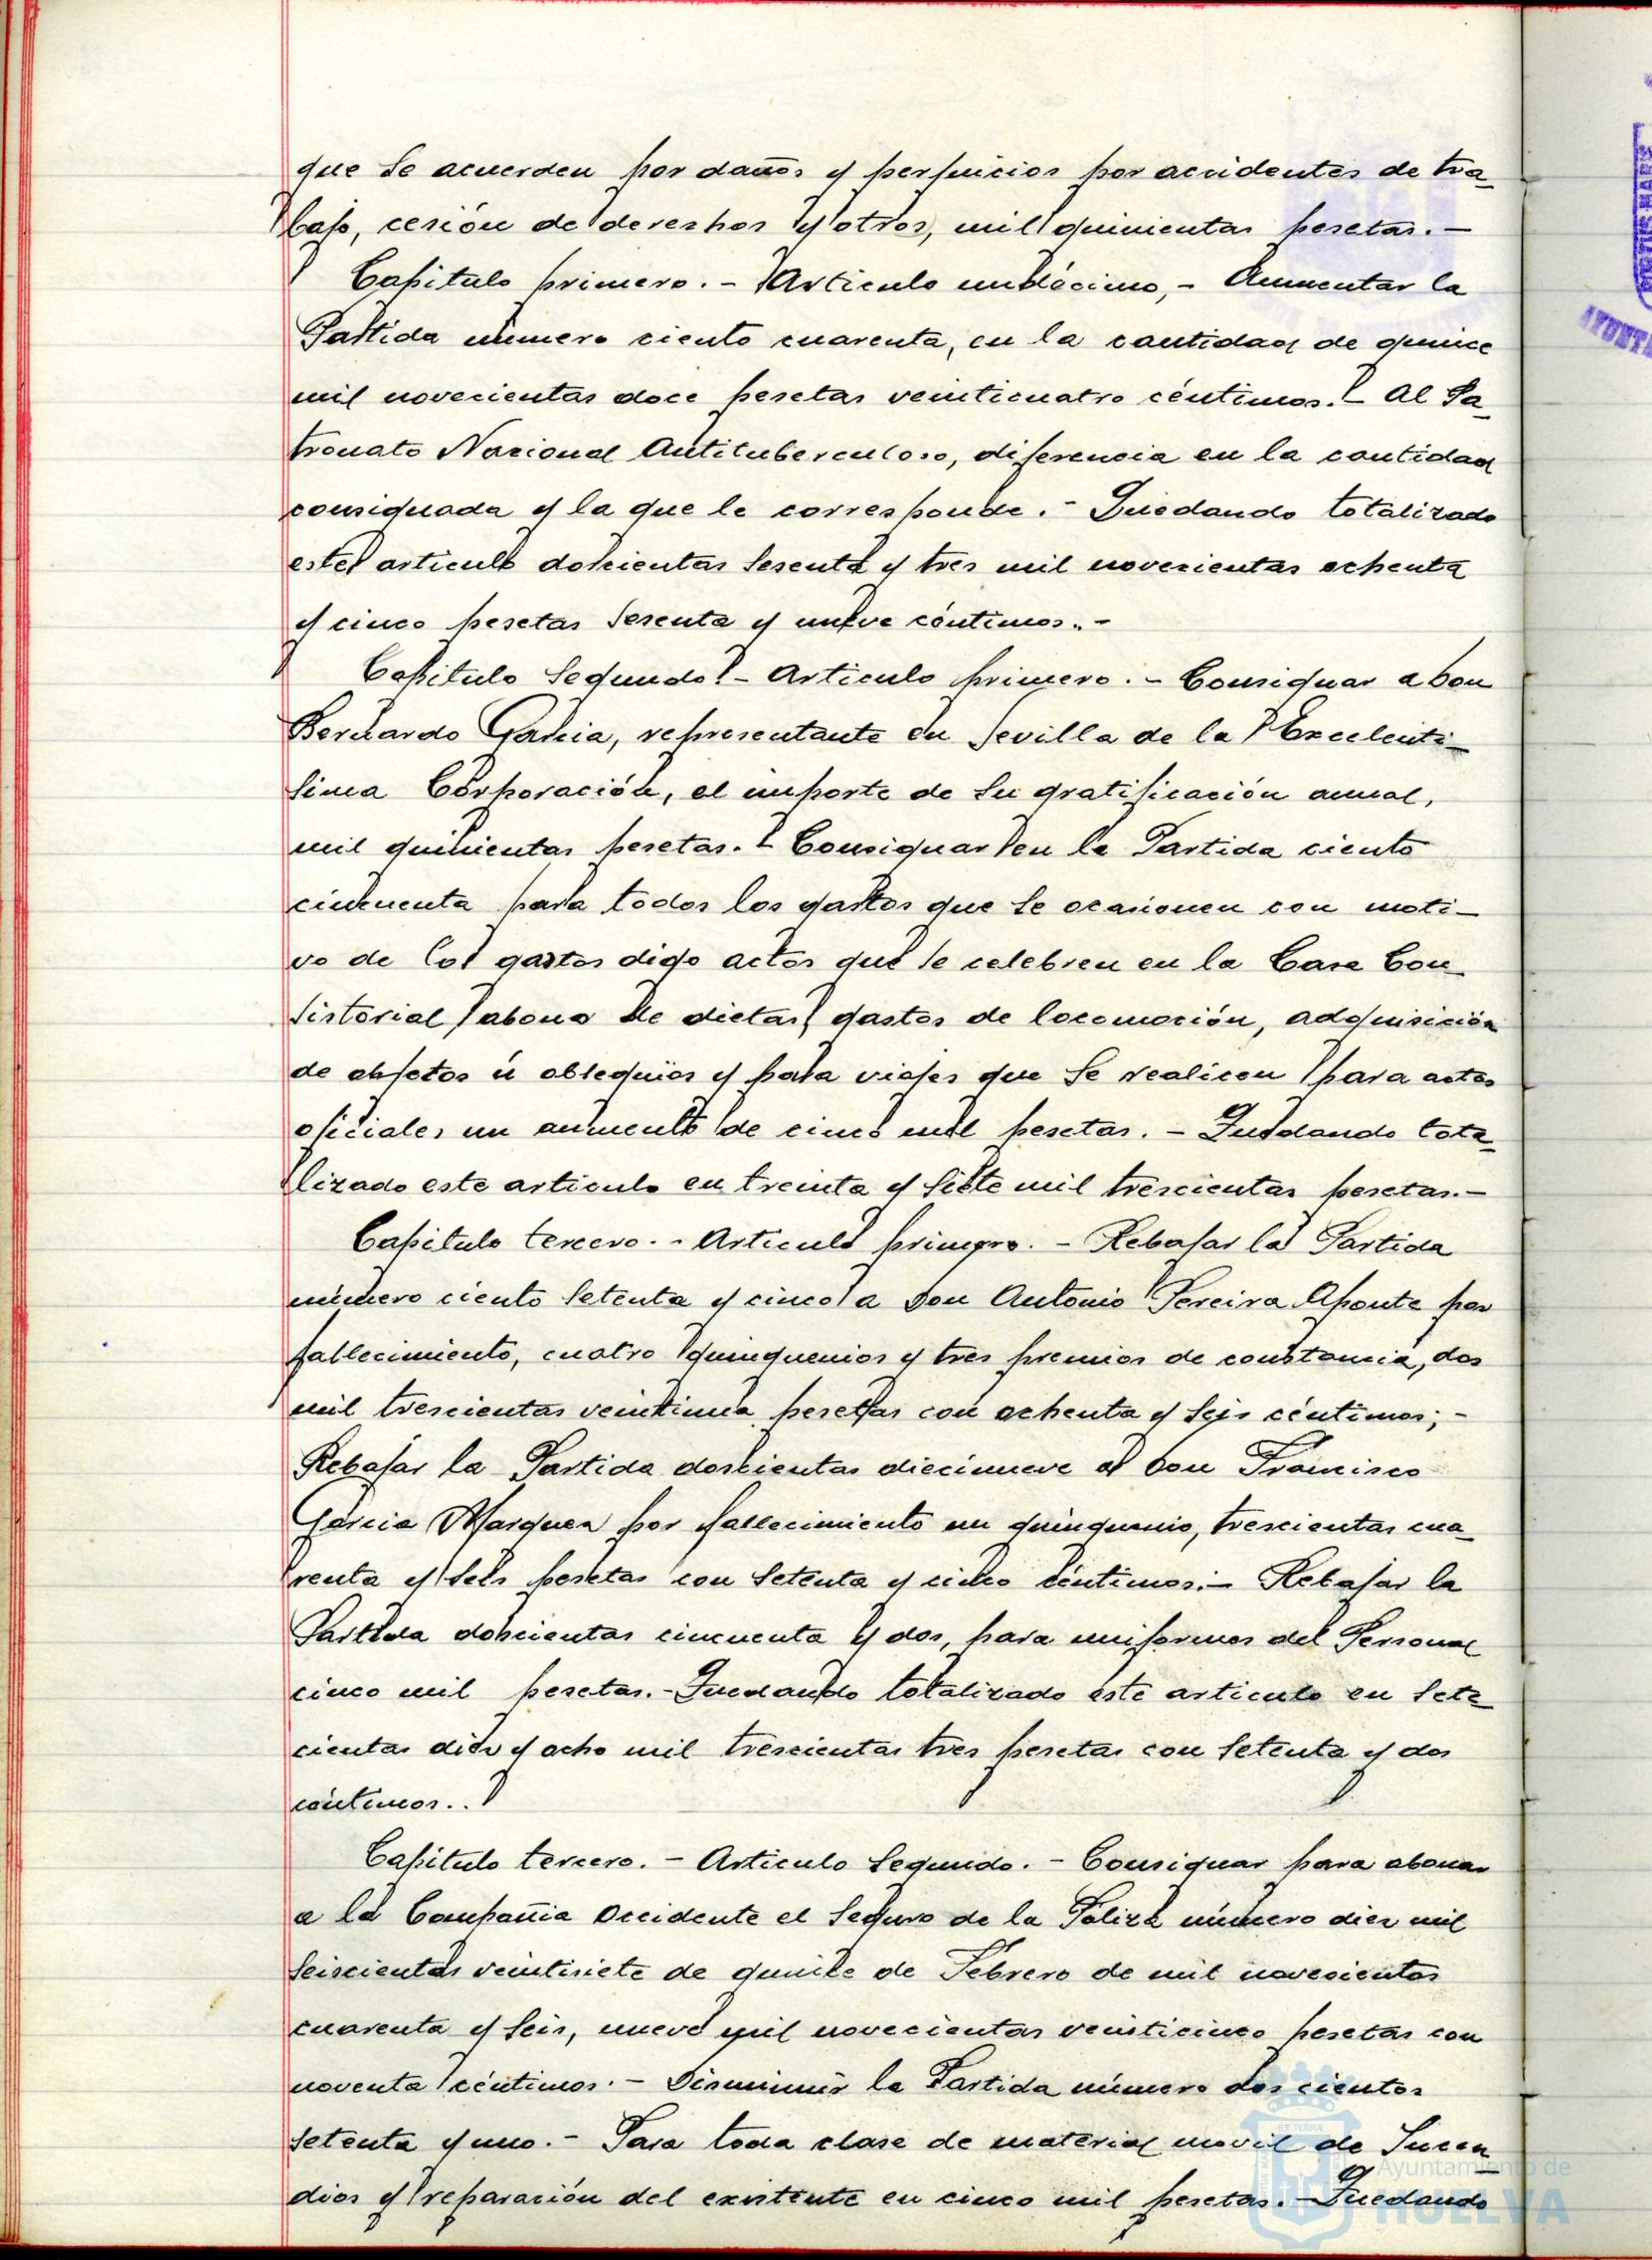 que se acuerden por daños y perjuicios por accidentes de tra-
bajo, cesión de derechos y otros, mil quinientas pesetas.-
Capitulo primero.- Articulo undécimo,- Aumentar la
Partida número ciento cuarenta, en la cantidad de quince
mil novecientas doce pesetas veinticuatro céntimos.- Al Pa-
tronato Nacional Antituberculoso, diferencia en la cantidad
consignada y la que le corresponde.- Quedando totalizado
este articulo doscientas sesenta y tres mil novecientas ochenta
y cinco pesetas sesenta y nueve céntimos.-
Capitulo segundo.- Articulo primero.- Consignar a Don
Bernardo Garcia, representante en Sevilla de la Excelentí-
sima Corporación, el importe de su gratificación anual,
mil quinientas pesetas.- Consignar en la Partida ciento
cincuenta para todos los gastos que se ocasionen con moti-
vo de los gastos digo actos que se celebren en la Casa Con
sistorial abono de dietas, gastos de locomoción, adquisición
de objetos ú obsequios y para viajes que se realicen para actos
oficiales un aumento de cinco mil pesetas.- Quedando tota-
lizado este articulo en treinta y siete mil trescientas pesetas.-
Capitulo tercero.- Articulo primero.- Rebajar la Partida
número ciento setenta y cinco a Don Antonio Pereira Aponte por
fallecimiento, cuatro quinquenios y tres premios de constancia, dos
mil trescientas veintiuna pesetas con ochenta y seis céntimos;-
Rebajar la Partida doscientas diecinueve a Don Francisco
Garcia Marquez por fallecimiento un quinquenio, trescientas cua-
renta y seis pesetas con setenta y cinco céntimos:- Rebajar la
Partida doscientas cincuenta y dos, para uniformes del Personal
cinco mil pesetas.- Quedando totalizado este articulo en sete-
cientas diez y ocho mil trescientas tres pesetas con setenta y dos
céntimos..
Capitulo tercero.- Articulo segundo.- Consignar para abonar
a la Compañia Occidente el seguro de la Póliza número diez mil
seiscientas veintisiete de quince de Febrero de mil novecientos
cuarenta y seis, nueve mil novecientas veinticinco pesetas con
noventa céntimos.- Disminuir la Partida número dos cientos
setenta y uno.- Para toda clase de material movil de Incen-
dios y reparación del existente en cinco mil pesetas.- Quedando
Ayuntamiento de
HUELVA